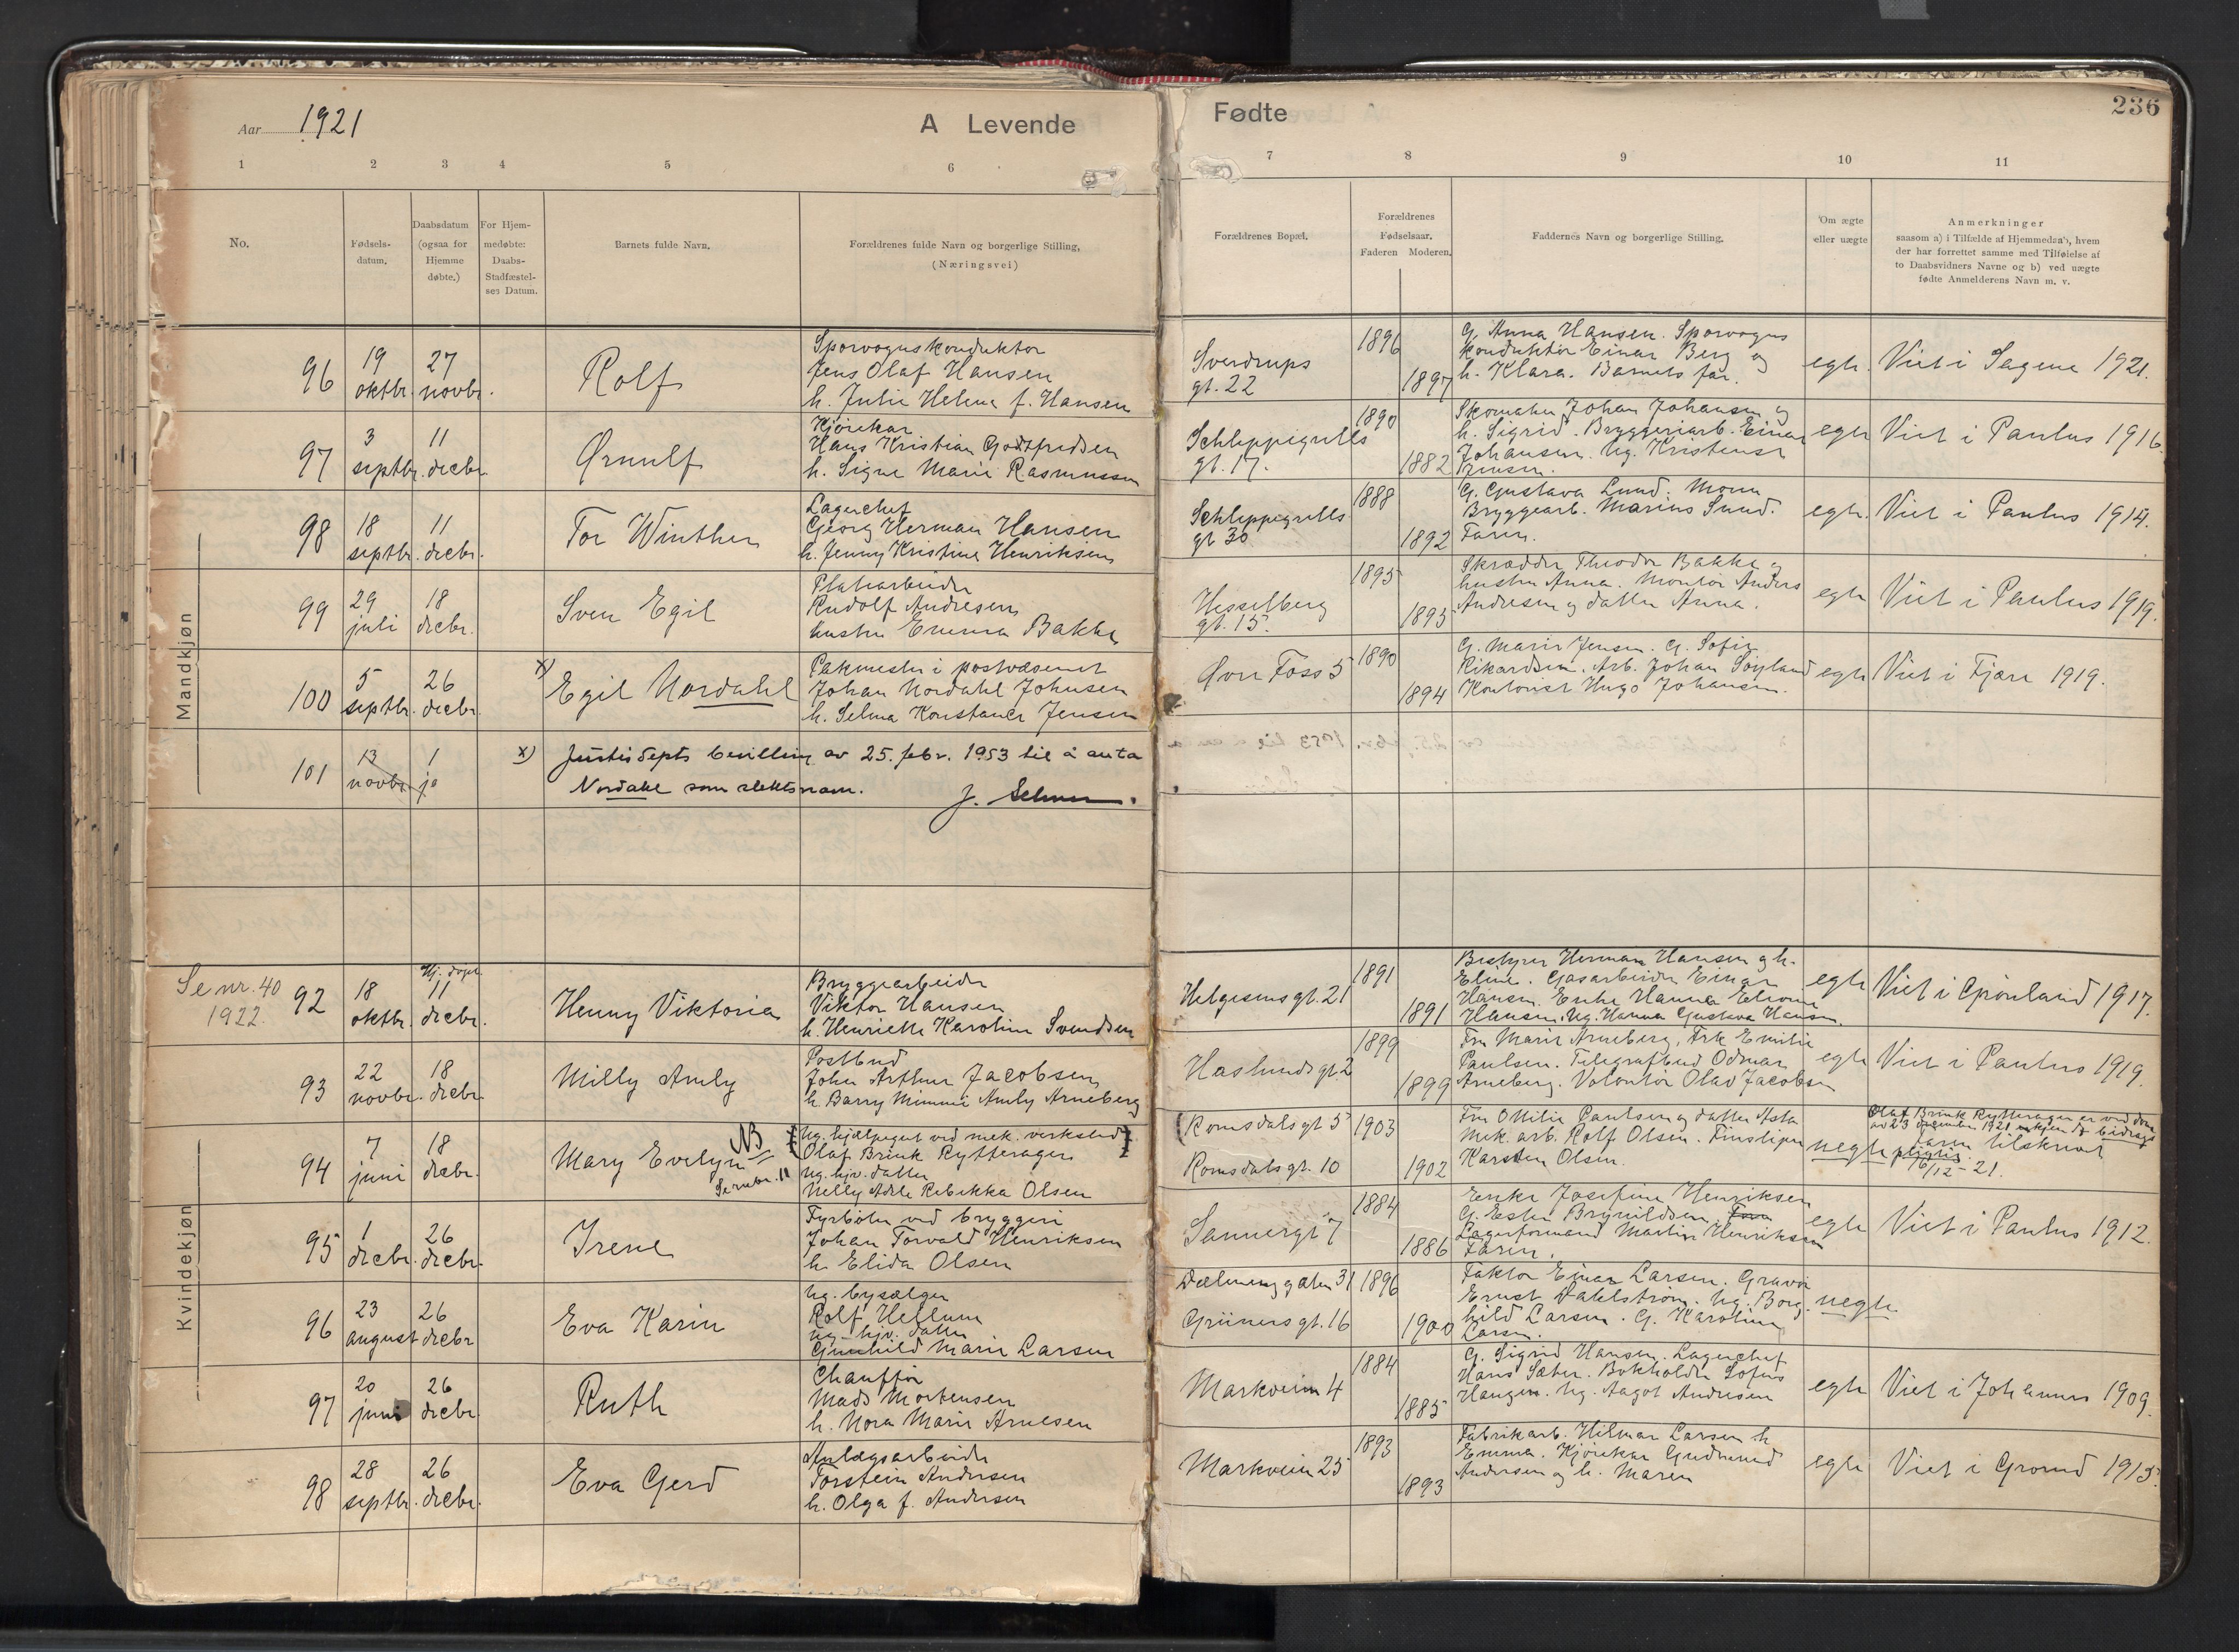 Aar 1921
A Levende Fødte
236
1 2 3 4 5 6 7 8 9 10 11
No.
Fødsels-
datum.
Daabsdatum
(ogsaa for
Hjemme
døbte.)
For Hjem-
medøbte:
Daabs-
Stadfæstel-
ses Datum.
Barnets fulde Navn.
Forældrenes fulde Navn og borgerlige Stilling,
(Næringsvei)
Forældrenes Bopæl.
Forældrenes
Fødselsaar.
Faderen Moderen.
Faddernes Navn og borgerlige Stilling.
Om ægte
eller uægte
Anmerkninger
saasom a) i Tilfælde af Hjemmedaab, hvem
der har forrettet samme med Tilføielse af
to Daabsvidners Navne og b) ved uægte
fødte Anmelderens Navn m. v.
Mandkjøn
96
19
oktbr.
27
novbr.
Rolf
Sporvognskonduktør
Jens Olaf Hansen
h. Julie Helene f. Hansen
Sverdrups
gt. 22
1896
1897
G. Anna Hansen. Sporvogns
konduktør Einar Berg og
h. Klara. Barnets far.
egte.
Viet i Sagene 1921.
97
3
septbr.
11
decbr.
Ørnulf
Kjørekar
Hans Kristian Godtfredsen
h. Signe Marie Rasmussen
Schleppegrells
gt. 17.
1890
1882
Skomaker Johan Johansen og
h. Sigrid. Bryggeriarb. Einar
Johansen. Ug. Kristense
Jensen.
egte
Viet i Paulus 1916.
98
18
septbr.
11
decbr.
Tor Winther
Lagerchef
Georg Herman Hansen
h. Jenny Kristine Henriksen
Schleppegrells
gt 30
1888
1892
G. Gustava Lund. Moren
Bryggearb. Marius Lund.
Faren.
egte.
Viet i Paulus 1914.
99
29
juli
18
decbr.
Sven Egil
Platearbeider
Rudolf Andresen
hustru Emma Bakke
Hesselberg
gt. 15.
1895
1895
Skrædder Theodor Bakke og
hustru Anna. Montør Anders
Andresen og datter Anna.
egte
Viet i Paulus 1919.
100
5
septbr.
26
decbr.
x)
Egil Nordahl
Pakmester i postvæsenet
Johan Nordahl Johnsen
h. Selma Konstance Jensen
Øvre Foss 5
1890
1894
G. Marie Jensen. G. Sofie
Rikardsen. Arb. Johan Søyland
Kontorist Hugo Johansen.
egte
Viet i Fjære 1919.
101
13
novbr.
1
ja
x) Justisdepts bevilling av 25. febr. 1953 til å anta
Nordahl som slektsnavn.
J. Selmer.
Kvindekjøn
Se nr. 40
1922.
92
18
oktbr.
Hj. døpt
11
decbr.
Henny Viktoria
Bryggearbeider
Viktor Hansen
h. Henriette Karoline Svendsen
Helgesens gt. 21
1891
1891
Bestyrer Herman Hansen og h.
Eline. Gasarbeider Einar
Hansen. Enke Hanna
Hansen. Ug. Hanna Gustava Hansen.
egte
Viet i Grønland 1917.
93
22
novbr.
18
decbr.
Milly Amly
Postbud
John Arthur Jacobsen
h. Barry Mimmi Amly Arneberg
Haslunds gt. 2
1899
1899
Fru Marie Arneberg, Frk Emilie
Paulsen. Telegrafbud Odmar
Arneberg. Volontør Olav Jacobsen
egte
Viet i Paulus 1919.
94
7
juni
18
decbr.
Mary Evelyn
NB
Ug. hjælpegut ved mek. verksted
Olaf Brink Rytterager
Ug. hjv. datter
Nelly Adele Rebekka Olsen
(Romsdals gt 5
Romsdals gt. 10
1903
1902
Fru Ottilie Paulsen og datter Asta
Mek. arb. Rolf Olsen. Finsliper
Karsten Olsen.
uegte
Olaf Brink Rytterager er ved dom
av 23 1921 bidrags
pligtig.
Faren tilskrevet
16/12-21.
95
1
decbr.
26
decbr.
Irene
Fyrbøter ved bryggeri
Johan Torvald Henriksen
h. Elida Olsen
Sannergt 7
1884
1886
Enke Josefine Henriksen
G. Ester Brynildsen.
Lagerformand Martin Henriksen
Faren.
egte
Viet i Paulus 1912.
96
23
august
26
decbr
Eva Karin
Ug. bysælger
Rolf Hellum
ug. hjv. datter
Gunhild Marie Larsen
Dælenenggaten 31
Grüners gt. 16
1896
1900
Faktor Einar Larsen. Gravør
Ernst Dahlstrøm. Ug. Borg-
hild Larsen. G. Karoline
Larsen.
uegte.
97
20
juni
26
decbr.
Ruth
Chauffør
Mads Mortensen
h. Nora Marie Arnesen
Markveien 4
1884
1885
G. Sigrid Hansen. Lagerchef
Hans Sæter. Bokholder Sofus
Haugen. Ug. Aagot Andresen
egte
Viet i Johannes 1909.
98
28
septbr.
26
decbr.
Eva Gerd
Anlægsarbeider
Torstein Andersen
h. Olga f. Andersen
Markveien 25
1893
1893
Fabrikarb. Hilmar Larsen h.
Emma. Kjørekar Gudmund
Andersen og h. Maren
egte
Viet i Grorud 1915.